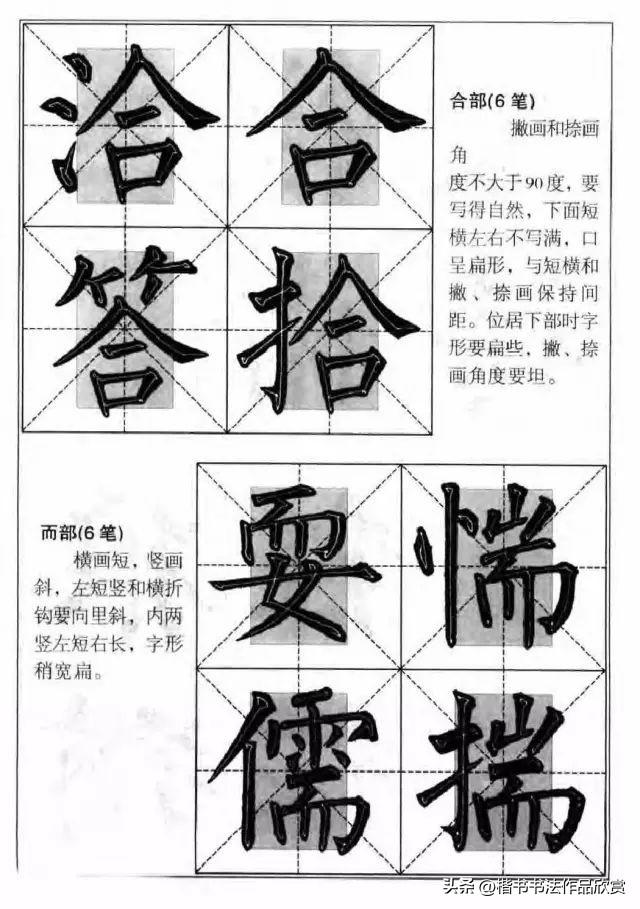 洽 合
合部(6 笔)
撇画和捺画
角
度不大于90度，要
写得自然，下面短
横左右不写满，口
呈扁形，与短横和
撇、捺画保持间
距。位居下部时字
形要扁些，撇、捺
画角度要坦。
答 拾
而部(6 笔)
横画短，竖画
斜，左短竖和横折
钩要向里斜，内两
竖左短右长，字形
稍宽扁。
耍 惴
儒 揣
头条 @楷书书法作品欣赏